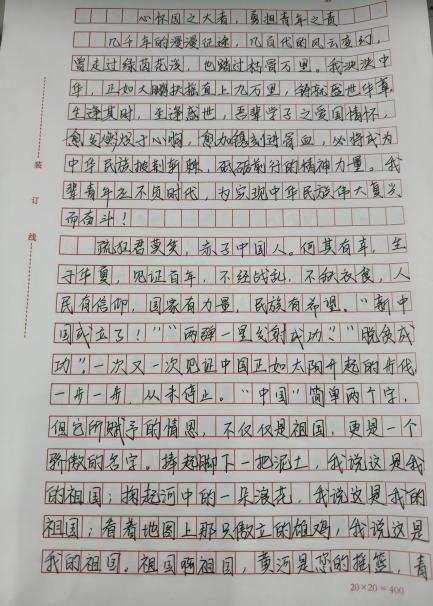 心怀国之大者，勇担青年之责
几千年的漫漫征途，几百代的风云变幻，
曾走过绿茵花海，也踏过枯骨万里。我泱泱中
华，正如大鹏扶摇直上九万里，铸就盛世华章。
生逢其时，生逢盛世，吾辈学子之爱国情怀，
愈发燃烧于心胸，愈加镌刻进骨血，必将成为
中华民族披荆斩棘，砥砺前行的精神力量。我
辈青年应不负时代，为实现中华民族伟大复兴
而奋斗！
疏狂君莫笑，亦了中国人。何其有幸，生
于华夏，见证百年，不经战乱，不缺衣食，人
民有信仰，国家有力量，民族有希望。“新中
国成立了！”“两弹一星发射成功！”“脱贫成
功”，一次又一次见证中国正如太阳升起的升代，
一步一步，从未停止。“中国”简单两个字，
但它所赋予的情思，不仅仅是祖国，更是一个
骄傲的名字。捧起脚下一把泥土，我说这是我
的祖国；掬起河中的一朵浪花，我说这是我的
祖国；看着地图上那只傲立的雄鸡，我说这是
我的祖国。祖国啊祖国，黄河是您的摇篮，青
20×20=400
装
订
线